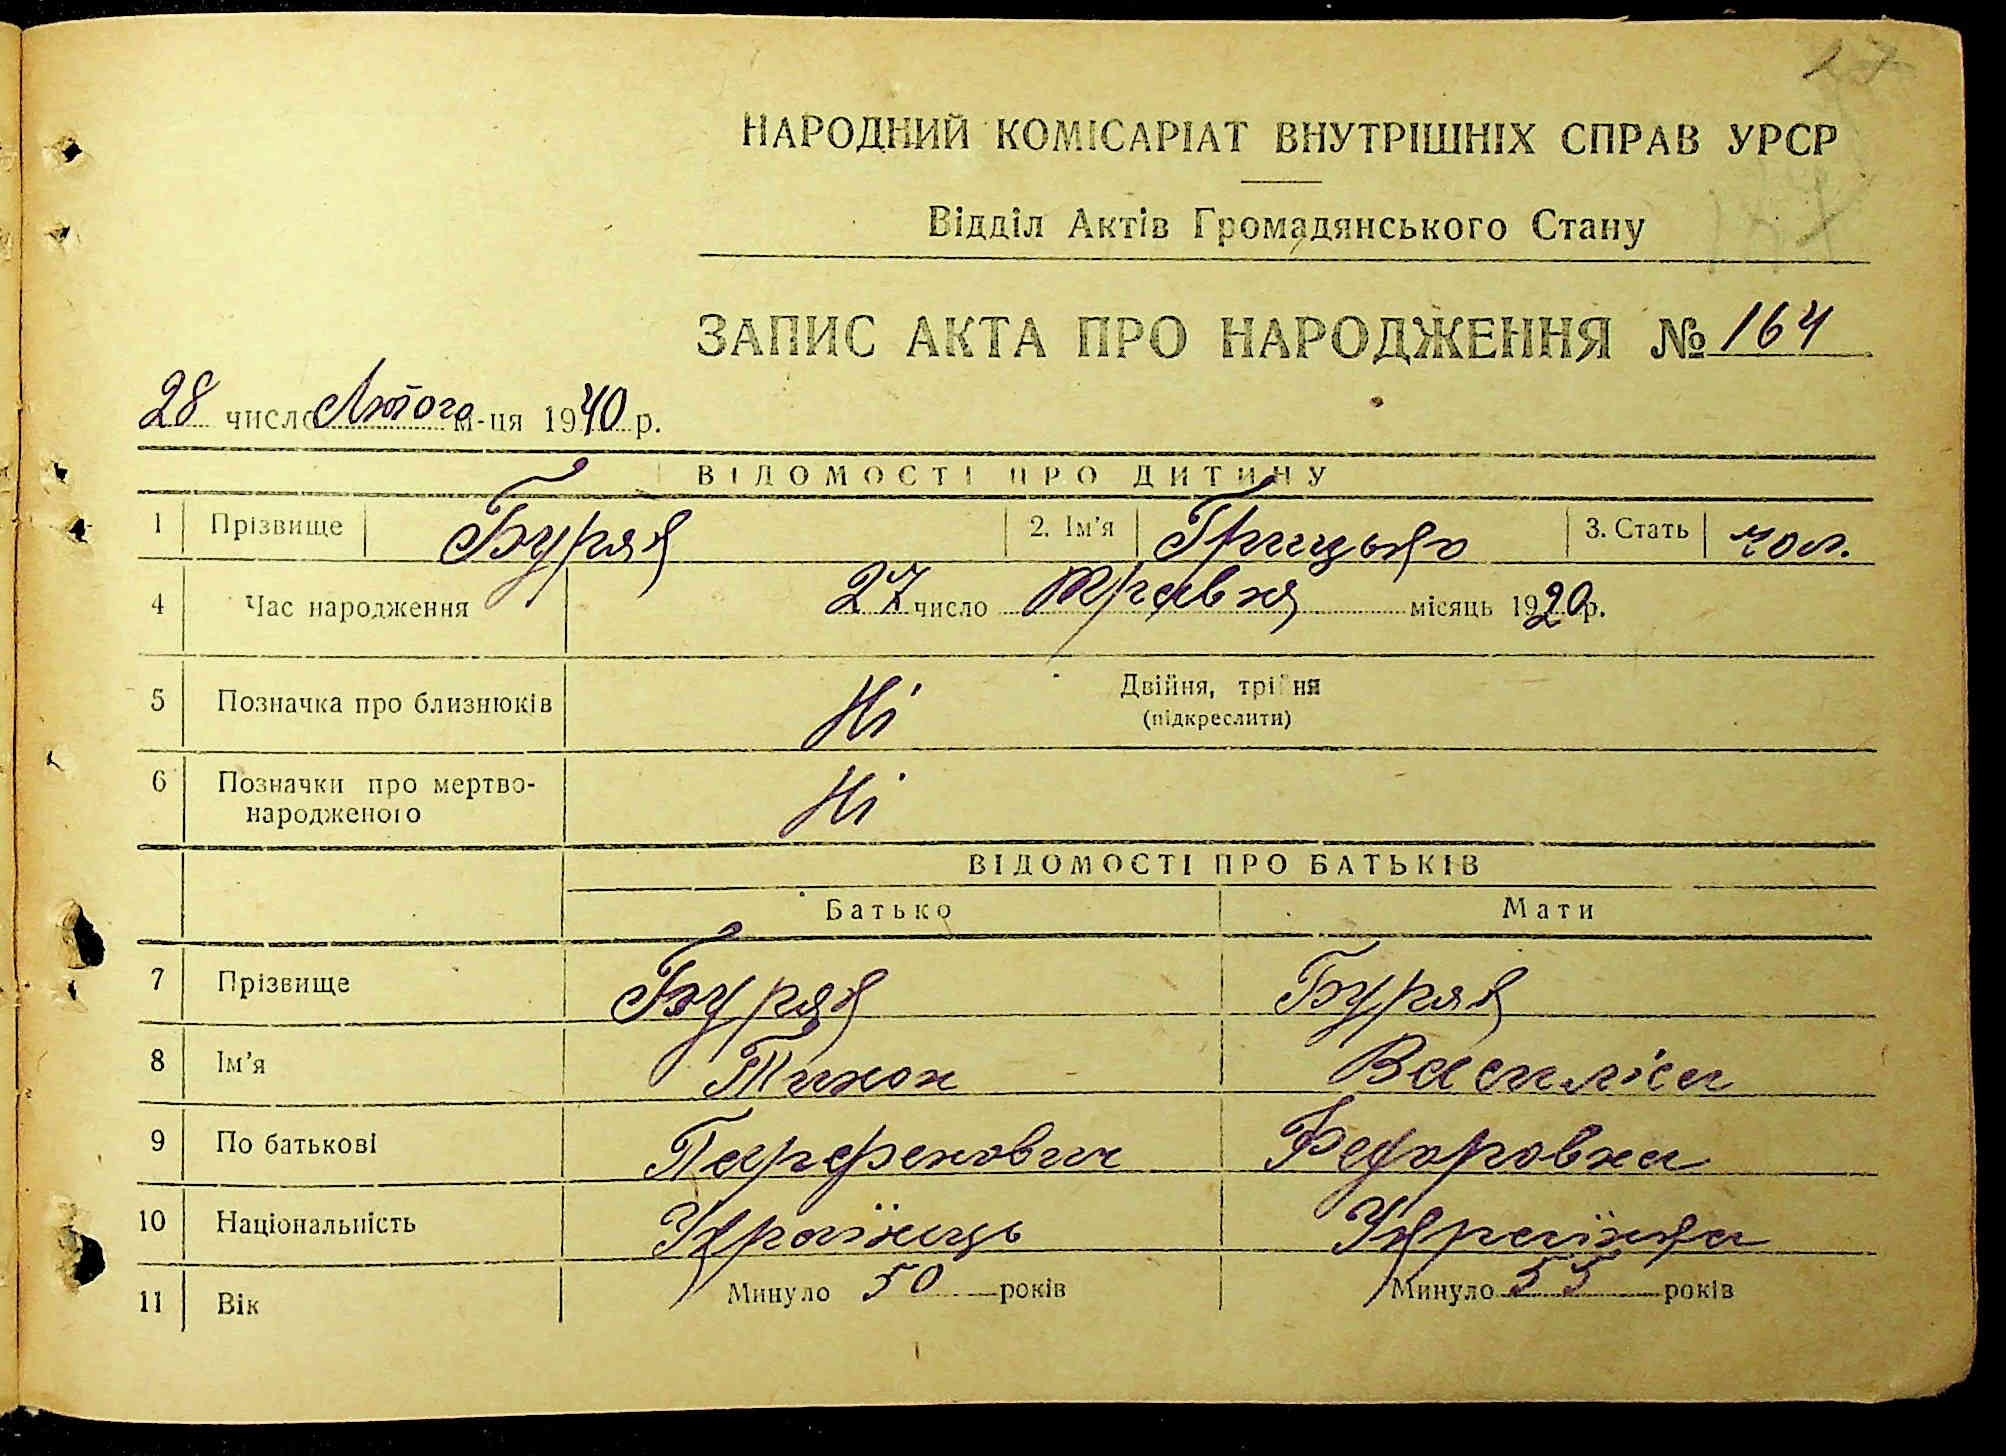 27
НАРОДНИЙ КОМІСАРІАТ ВНУТРІШНІХ СПРАВ УРСР
Відділ Актів Громадянського Стану
ЗАПИС АКТА ПРО НАРОДЖЕННЯ № 164
28 число Лютого м-ця 1940 р.
ВІДОМОСТІ ПРО ДИТИНУ
1 Прізвище Буряк 2. Ім'я Грицько 3. Стать чол.
4 Час народження 27 число травня місяць 1920 р.
5 Позначка про близнюків Ні Двійня, трійня
(підкреслити)
6 Позначки про мертво-
народженого Ні
ВІДОМОСТІ ПРО БАТЬКІВ
Батько Мати
7 Прізвище Буряк Буряк
8 Ім'я Тихон Василіса
9 По батькові Парфенович Федоровна
10 Національність Українець Українка
11 Вік Минуло 50 років Минуло 55 років